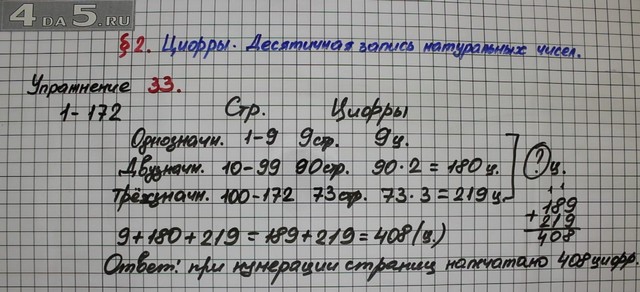 4 DA 5.RU
§2. Цифры. Десятичная запись натуральных чисел.
Упражнение 33.
1-172 Стр. Цифры
Однозначн. 1-9 9 стр. 9 ц.
Двузначн. 10-99 90 стр. 90·2=180 ц. ? ц.
Трёхзначн. 100-172 73 стр. 73·3=219 ц.
1 1
189
+ 219
408
9+180+219=189+219=408 (ц.)
Ответ: при нумерации страниц напечатано 408 цифр.